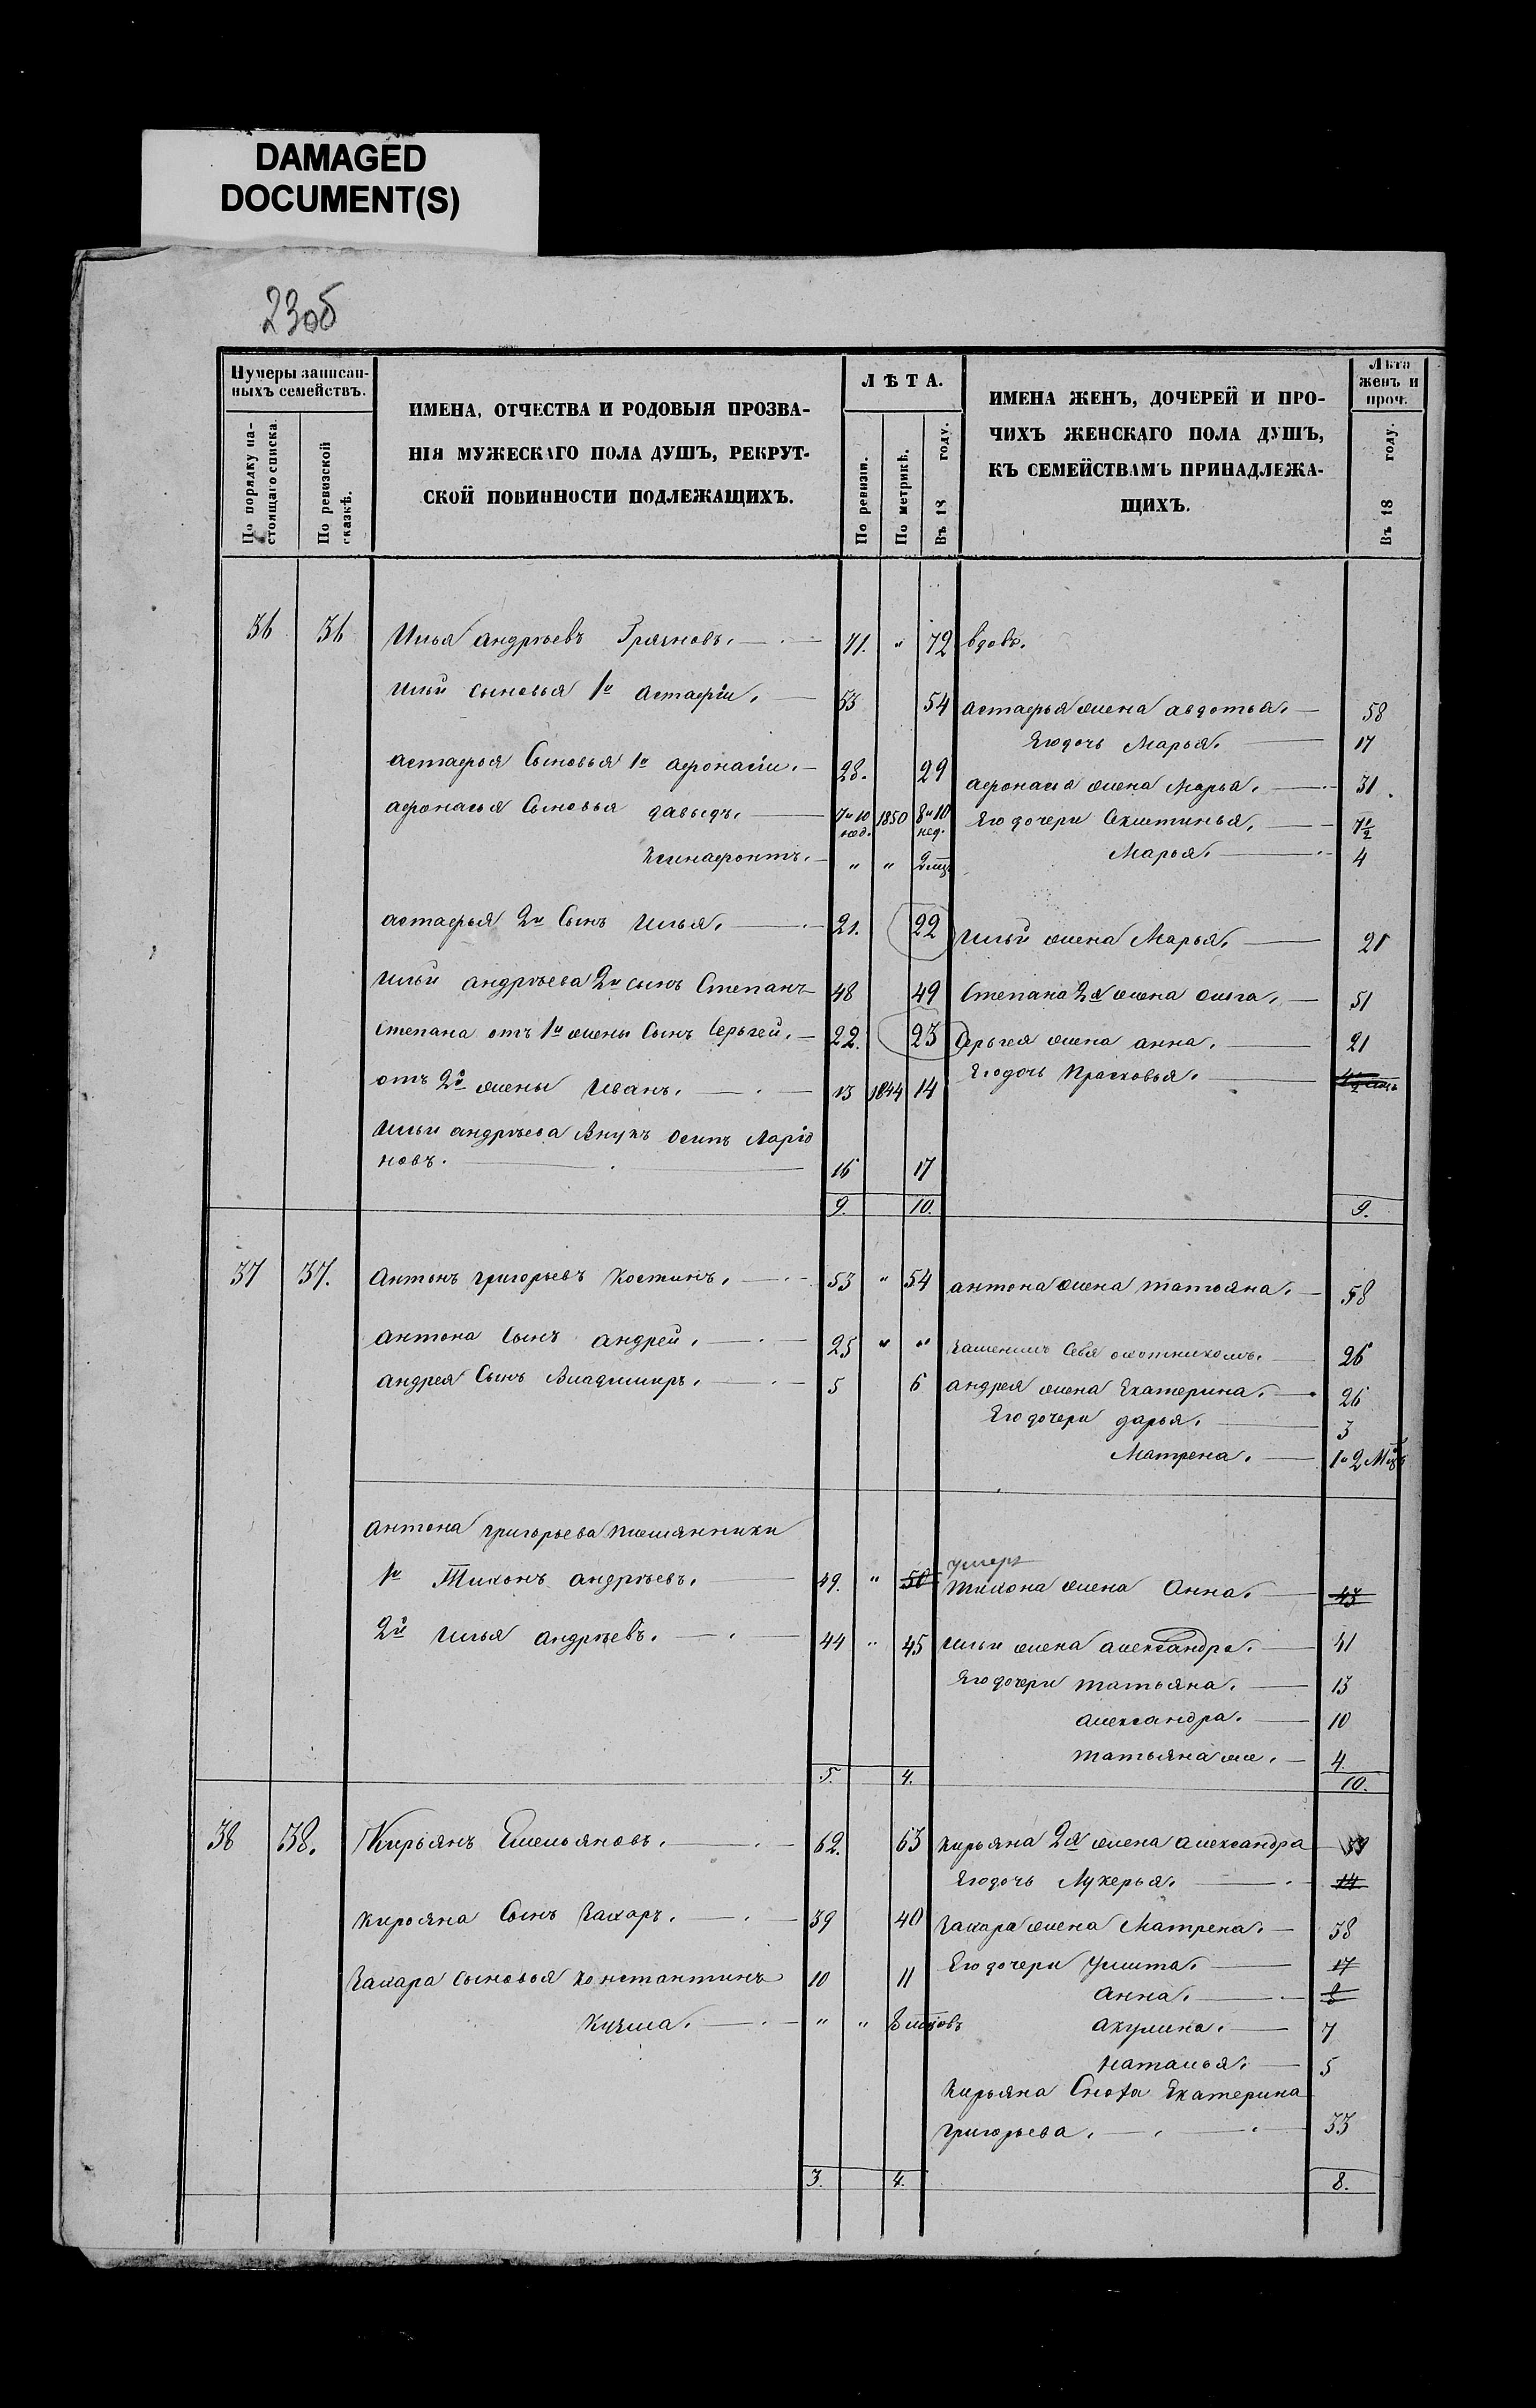 DAMAGED
DOCUMENT(S)
23об
Нумеры записан-
ныхъ семействъ.
По порядку на-
стоящаго списка.
По ревизской
сказкѣ.
ИМЕНА, ОТЧЕСТВА И РОДОВЫЯ ПРОЗВА-
НІЯ МУЖЕСКАГО ПОЛА ДУШЪ, РЕКРУТ-
СКОЙ ПОВИННОСТИ ПОДЛЕЖАЩИХЪ.
ЛѢТА.
По ревизіи.
По метрикѣ.
Въ 18 году.
ИМЕНА ЖЕНЪ, ДОЧЕРЕЙ И ПРО-
ЧИХЪ ЖЕНСКАГО ПОЛА ДУШЪ,
КЪ СЕМЕЙСТВАМЪ ПРИНАДЛЕЖА-
ЩИХЪ.
Лѣта
женъ и
проч.
Въ 18 году.
36 36 Илья андрѣевъ 71. " 72 вдовъ.
Ильи сыновья 1й астафій. 53 54 астафья жена авдотья. 58
Его дочь Марья. 17
астафья Сыновья 1й афонасій. 28. 29 афонасья жена Марья. 31.
афонасья Сыновья давыдъ. 7 и 10 нед. 1850 8 и 10 нед. Его дочери 7½
Ксинафонтъ. " " Марья. 4
астафья 2й Сынъ Илья. 21. 22 Ильи жена Марья. 21
Ильи андрѣева 2й сынъ Степанъ 48 49 Степана 2я жена Ольга. 51
Степана отъ 1й жены Сынъ Сергей. 22. 23 Сергея жена анна. 21
Его дочь Прасковья.
отъ 2й жены Иванъ. 13 1844 14
Ильи андрѣева Внукъ Осипъ Ларіо
новъ. 16 17
9. 10. 9.
37 37. Антонъ григорьевъ Костинъ. 53 " 54 антона жена татьяна. 58
антона Сынъ андрей. 25 " " себя охотникомъ. 26
андрея Сынъ Владимиръ. 5 6 андрея жена Екатерина. 26
Его дочери дарья. 3
Матрена. 1 и 2 Мца
антона григорьева племянники
умеръ
1й Тихонъ андрѣевъ. 49. " 50 тихона жена Анна. 43
2й Илья андрѣевъ. 44 " 45 Ильи жена александра. 41
Его дочери татьяна. 13
александра. 10
татьяна же. 4
5. 4. 10.
38 38. Кирьянъ Емельяновъ. 62. 63 Кирьяна 2я жена александра
Его дочь Лукерья. 14
Кирьяна Сынъ Захаръ. 39 40 Захара жена Матрена. 38
Захара сыновья Константинъ 10 11 Его дочери Улита. 17
Анна. 8
Кузма. " " 8 мцовъ акулина. 7
Наталья. 5
Кирьяна Сноха Екатерина
григорьева. 33
3. 4. 8.